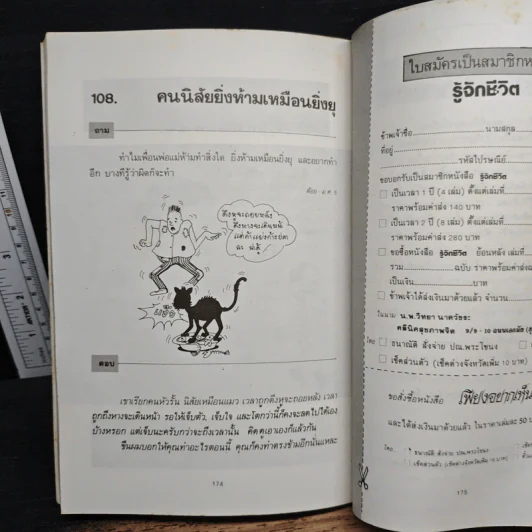 108. คนนิสัยยิ่งห้ามเหมือนยิ่งยุ
ถาม
ทำไมเพื่อนพ่อแม่ห้ามทำสิ่งใด ยิ่งห้ามเหมือนยิ่งยุ และอยากทำ
อีก บางทีรู้ว่าผิดก็จะทำ
ดึงหูจะถอยหลัง
ดึงหางจะเดินหน้า
ตอบ
เขาเรียกคนหัวรั้น นิสัยเหมือนแมว เวลาถูกดึงหูจะถอยหลัง เวลา
ถูกดึงหางจะเดินหน้า รอให้เจ็บตัว, เจ็บใจ และโตกว่านี้ก็คงจะลดไปได้เอง
บ้างหรอก แต่เจ็บนะครับกว่าจะถึงเวลานั้น คิดดูเอาเองก็แล้วกัน
ขืนผมบอกให้คุณทำอะไรตอนนี้ คุณก็คงทำตรงข้ามอีกนั่นแหละ
174
ใบสมัครเป็นสมาชิกห
รู้จักชีวิต
ข้าพเจ้าชื่อ นามสกุล
ที่อยู่
รหัสไปรษณีย์
ขอบอกรับเป็นสมาชิกหนังสือ รู้จักชีวิต
เป็นเวลา 1 ปี (4 เล่ม) ตั้งแต่เล่มที่
ราคาพร้อมค่าส่ง 140 บาท
เป็นเวลา 2 ปี (8 เล่ม) ตั้งแต่เล่มที่
ราคาพร้อมค่าส่ง 280 บาท
ขอซื้อหนังสือ รู้จักชีวิต ย้อนหลัง เล่มที่
รวม ฉบับ ราคาพร้อมค่าส่ง
เป็นเงิน บาท
ข้าพเจ้าได้ส่งเงินมาด้วยแล้ว จำนวน
ในนาม น.พ.วิทยา นาควัชระ
คลินิคสุขภาพจิต 9/9 - 10
โดย ธนาณัติ สั่งจ่าย ปณ.พระโขนง
เช็คส่วนตัว (เช็คต่างจังหวัดเพิ่ม 10 บาท)
ขอสั่งซื้อหนังสือ เพียงอยากเห็น
และได้ส่งเงินมาด้วยแล้ว ในราคาเล่มละ 50 บ
โดย ธนาณัติ สั่งจ่าย ปณ.พระโขนง
เช็คส่วนตัว (เช็คต่างจังหวัดเพิ่ม 10 บาท)
175